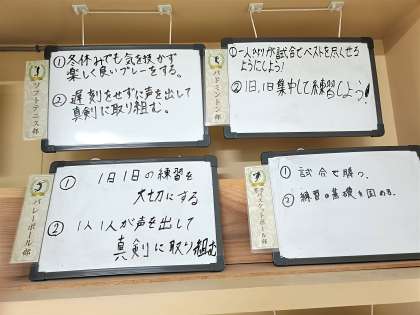 ソフトテニス部
①冬休みでも気を抜かず
楽しく良いプレーをする。
②遅刻をせずに声を出して
真剣に取り組む。
バドミントン部
①一人ひとりが試合でベストを尽くせる
ようにしよう!
②1日、1日集中して練習しよう!
バレーボール部
①1日1日の練習を
大切にする
②1人1人が声を出して
真剣に取り組む
バスケットボール部
①試合で勝つ。
②練習で基礎を固める。